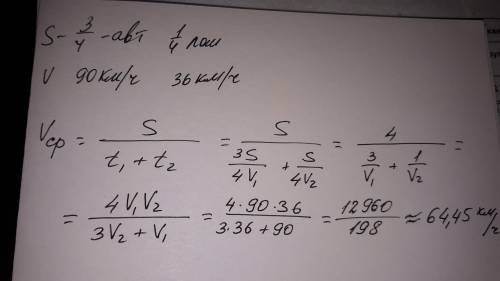 S - 3/4 - авт 1/4 лош
V 90 км/ч 36 км/ч
Vср = S/(t₁ + t₂) = S/(3S/4V₁ + S/4V₂) = 4/(3/V₁ + 1/V₂) =
= 4V₁V₂/(3V₂ + V₁) = 4·90·36/(3·36+90) = 12960/198 ≈ 64,45 км/ч